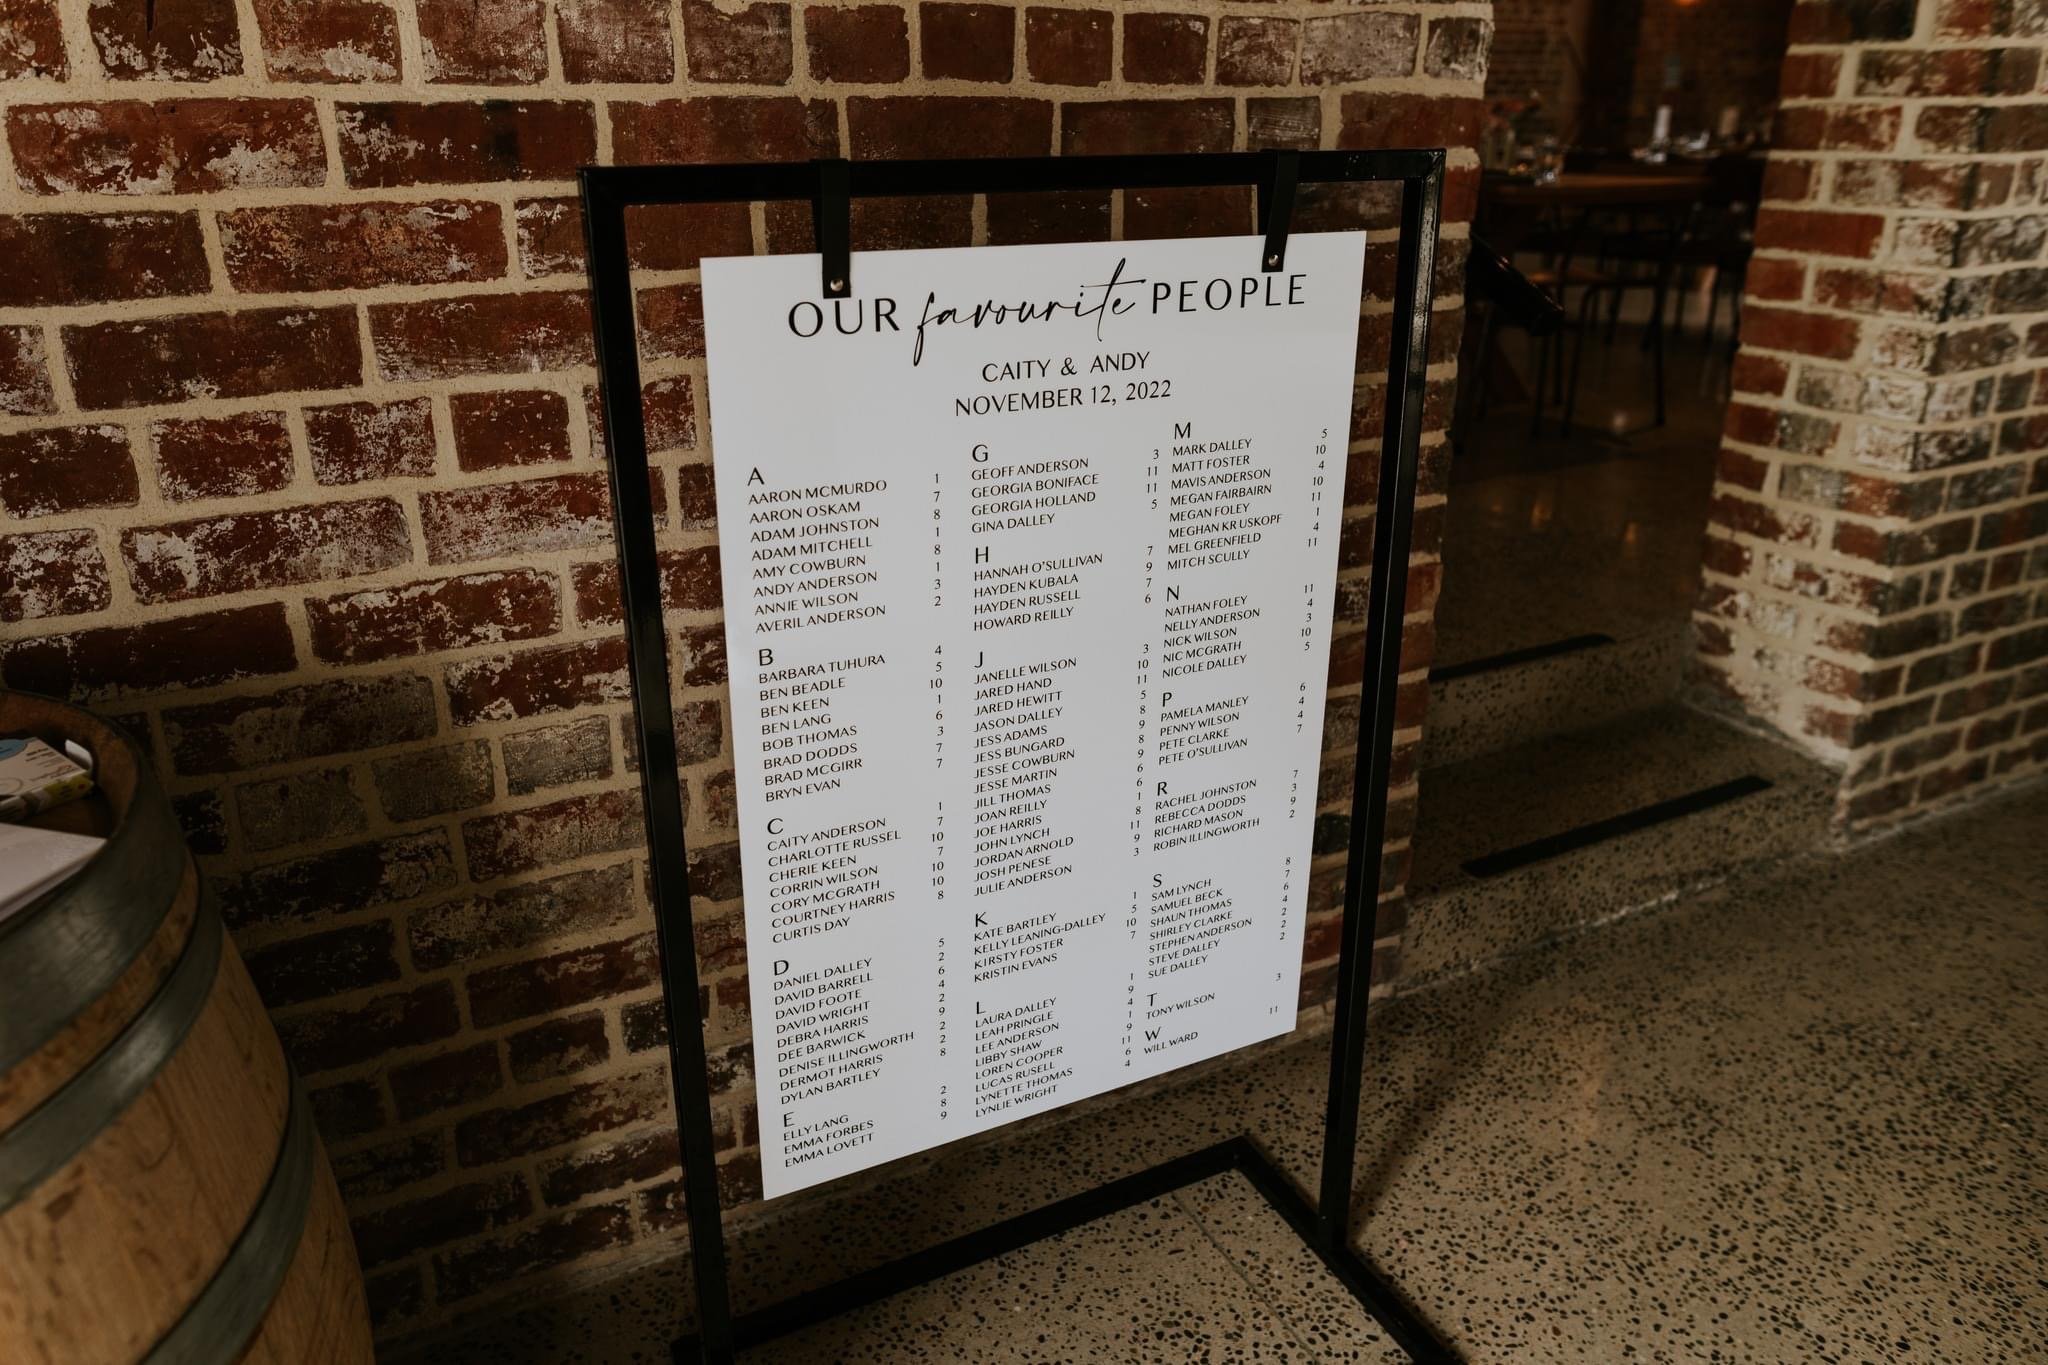 OUR favourite PEOPLE
CAITY & ANDY
NOVEMBER 12, 2022
A
AARON MCMURDO 1
AARON OSKAM 7
ADAM JOHNSTON 8
ADAM MITCHELL 1
AMY COWBURN 8
ANDY ANDERSON 1
ANNIE WILSON 3
AVERIL ANDERSON 2
B
BARBARA TUHURA 4
BEN BEADLE 5
BEN KEEN 10
BEN LANG 1
BOB THOMAS 6
BRAD DODDS 3
BRAD MCGIRR 7
BRYN EVAN 7
C
CAITY ANDERSON 1
CHARLOTTE RUSSEL 7
CHERIE KEEN 10
CORRIN WILSON 7
CORY MCGRATH 10
COURTNEY HARRIS 10
CURTIS DAY 8
D
DANIEL DALLEY 5
DAVID BARRELL 2
DAVID FOOTE 6
DAVID WRIGHT 4
DEBRA HARRIS 2
DEE BARWICK 9
DENISE ILLINGWORTH 2
DERMOT HARRIS 2
DYLAN BARTLEY 8
E
ELLY LANG 2
EMMA FORBES 8
EMMA LOVETT 9
G
GEOFF ANDERSON 3
GEORGIA BONIFACE 11
GEORGIA HOLLAND 11
GINA DALLEY 5
H
HANNAH O'SULLIVAN 7
HAYDEN KUBALA 9
HAYDEN RUSSELL 7
HOWARD REILLY 6
J
JANELLE WILSON 3
JARED HAND 10
JARED HEWITT 11
JASON DALLEY 5
JESS ADAMS 8
JESS BUNGARD 9
JESSE COWBURN 8
JESSE MARTIN 9
JILL THOMAS 6
JOAN REILLY 6
JOE HARRIS 1
JOHN LYNCH 8
JORDAN ARNOLD 11
JOSH PENESE 9
JULIE ANDERSON 3
K
KATE BARTLEY 1
KELLY LEANING-DALLEY 5
KIRSTY FOSTER 10
KRISTIN EVANS 7
L
LAURA DALLEY 1
LEAH PRINGLE 9
LEE ANDERSON 4
LIBBY SHAW 1
LOREN COOPER 9
LUCAS RUSELL 11
LYNETTE THOMAS 6
LYNLIE WRIGHT 4
M
MARK DALLEY 5
MATT FOSTER 10
MAVIS ANDERSON 4
MEGAN FAIRBAIRN 10
MEGAN FOLEY 11
MEGHAN KR USKOPF 1
MEL GREENFIELD 4
MITCH SCULLY 11
N
NATHAN FOLEY 11
NELLY ANDERSON 4
NICK WILSON 3
NIC MCGRATH 10
NICOLE DALLEY 5
P
PAMELA MANLEY 6
PENNY WILSON 4
PETE CLARKE 4
PETE O'SULLIVAN 7
R
RACHEL JOHNSTON 7
REBECCA DODDS 3
RICHARD MASON 9
ROBIN ILLINGWORTH 2
S
SAM LYNCH 8
SAMUEL BECK 7
SHAUN THOMAS 6
SHIRLEY CLARKE 4
STEPHEN ANDERSON 2
STEVE DALLEY 2
SUE DALLEY 2
T
TONY WILSON 3
W
WILL WARD 11